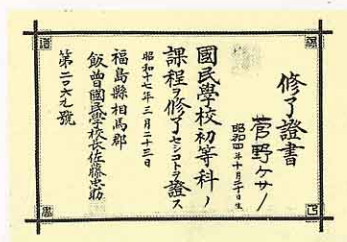 修了證書
菅野ケサノ
昭和四年十月二十日生
國民學校初等科ノ
課程ヲ修了セシコトヲ證ス
昭和十七年三月二十三日
福島縣相馬郡
飯曾國民學校長佐藤忠助
第二〇六九號